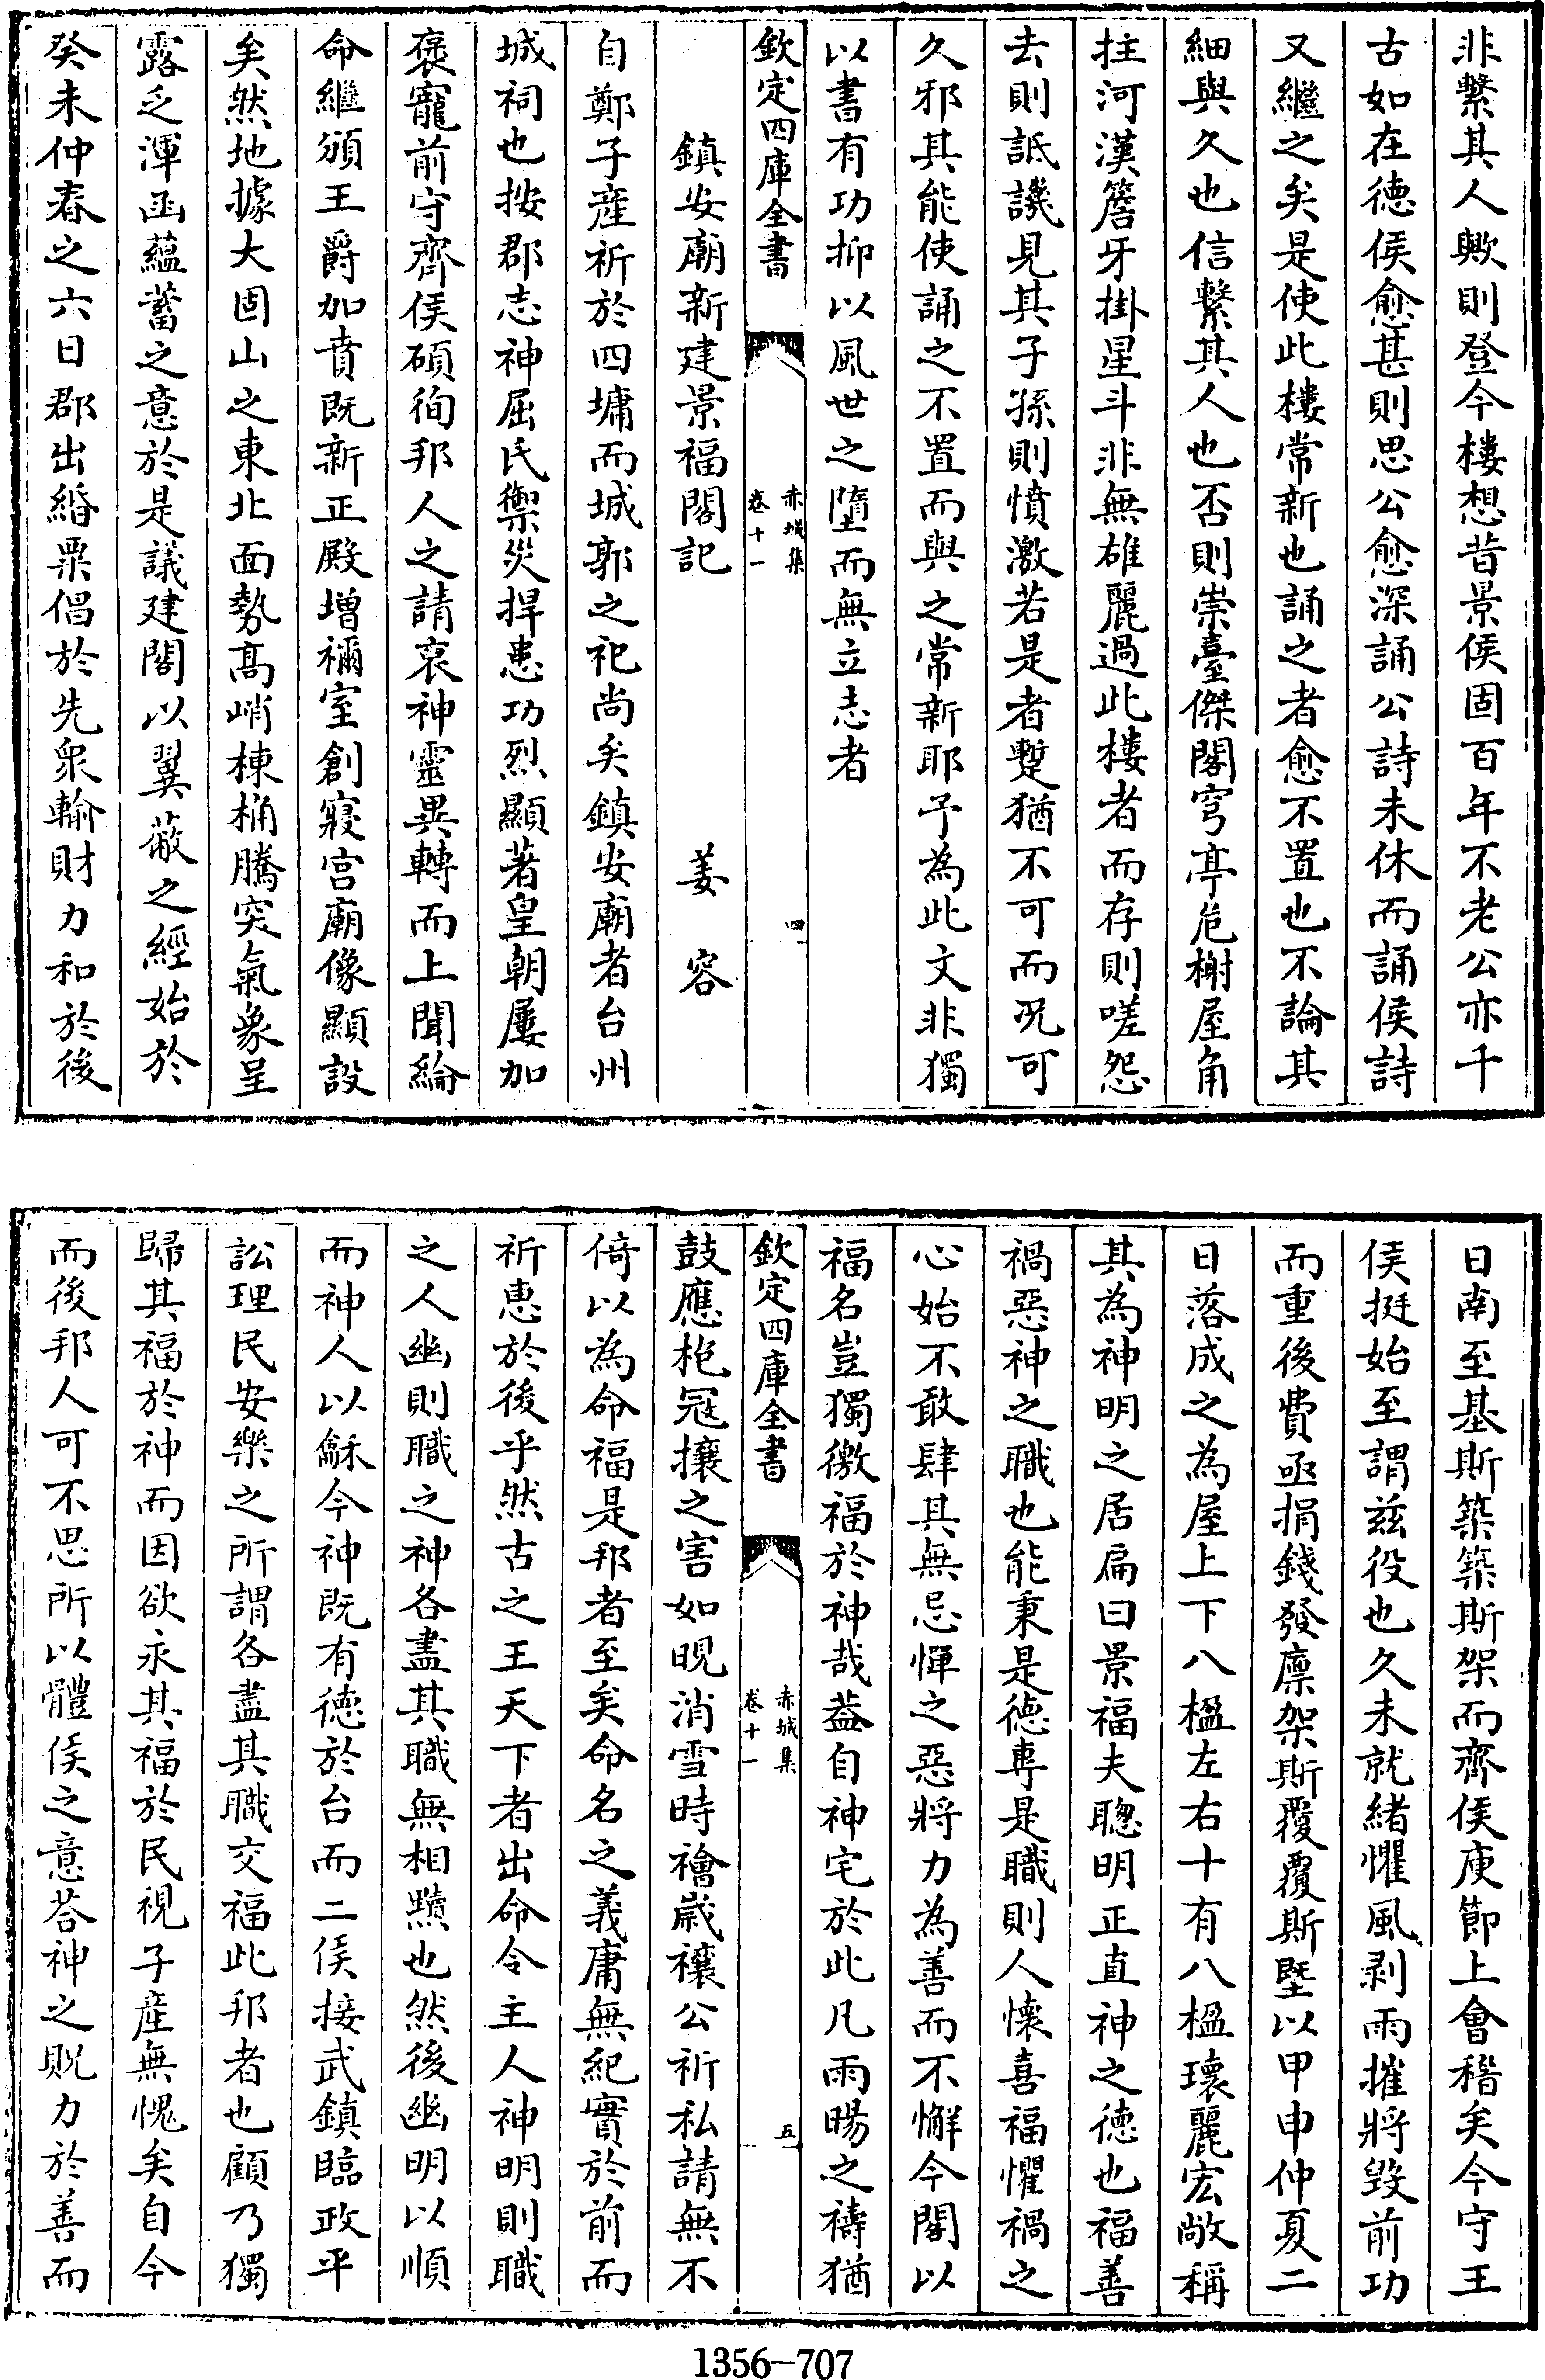 非繫其人歟則登今樓想昔景侯固百年不老公亦千
古如在德侯愈甚則思公愈深誦公詩未休而誦侯詩
又繼之矣是使此樓常新也誦之者愈不置也不論其
細與久也信繫其人也否則崇臺傑閣穹亭危榭屋角
拄河漢簷牙掛星斗非無雄麗過此樓者而存則嗟怨
去則詆譏見其子孫則憤激若是者蹔猶不可而況可
久邪其能使誦之不置而與之常新耶予為此文非獨
以書有功抑以風世之墮而無立志者
欽定四庫全書
赤城集
卷十一
四
鎮安廟新建景福閣記
姜容
自鄭子産祈於四墉而城郭之祀尚矣鎮安廟者台州
城祠也按郡志神屈氏禦災捍患功烈顯著皇朝屢加
褒寵前守齊侯碩徇邦人之請裒神靈異轉而上聞綸
命繼頒王爵加賁既新正殿增禰室創寢宫廟像顯設
矣然地據大固山之東北面勢髙峭棟桷騰突氣象呈
露乏渾函蘊蓄之意於是議建閣以翼蔽之經始於
癸未仲春之六日郡出緡粟倡於先衆輸財力和於後
日南至基斯築築斯架而齊侯庾節上會稽矣今守王
侯挺始至謂兹役也久未就緒懼風剥雨摧將毁前功
而重後費亟捐錢發廩架斯覆覆斯塈以甲申仲夏二
日落成之為屋上下八楹左右十有八楹瓌麗宏敞稱
其為神明之居扁曰景福夫聰明正直神之德也福善
禍惡神之職也能秉是德專是職則人懐喜福懼禍之
心始不敢肆其無忌憚之惡將力為善而不懈今閣以
福名豈獨徼福於神哉葢自神宅於此凡雨暘之禱猶
欽定四庫全書
赤城集
卷十一
五
鼓應枹冦攘之害如晛消雪時禬嵗禳公祈私請無不
倚以為命福是邦者至矣命名之義庸無紀實於前而
祈恵於後乎然古之王天下者出命令主人神明則職
之人幽則職之神各盡其職無相黷也然後幽明以順
而神人以龢今神既有德於台而二侯接武鎮臨政平
訟理民安樂之所謂各盡其職交福此邦者也顧乃獨
歸其福於神而因欲永其福於民視子産無愧矣自今
而後邦人可不思所以體侯之意荅神之貺力於善而
1356-707